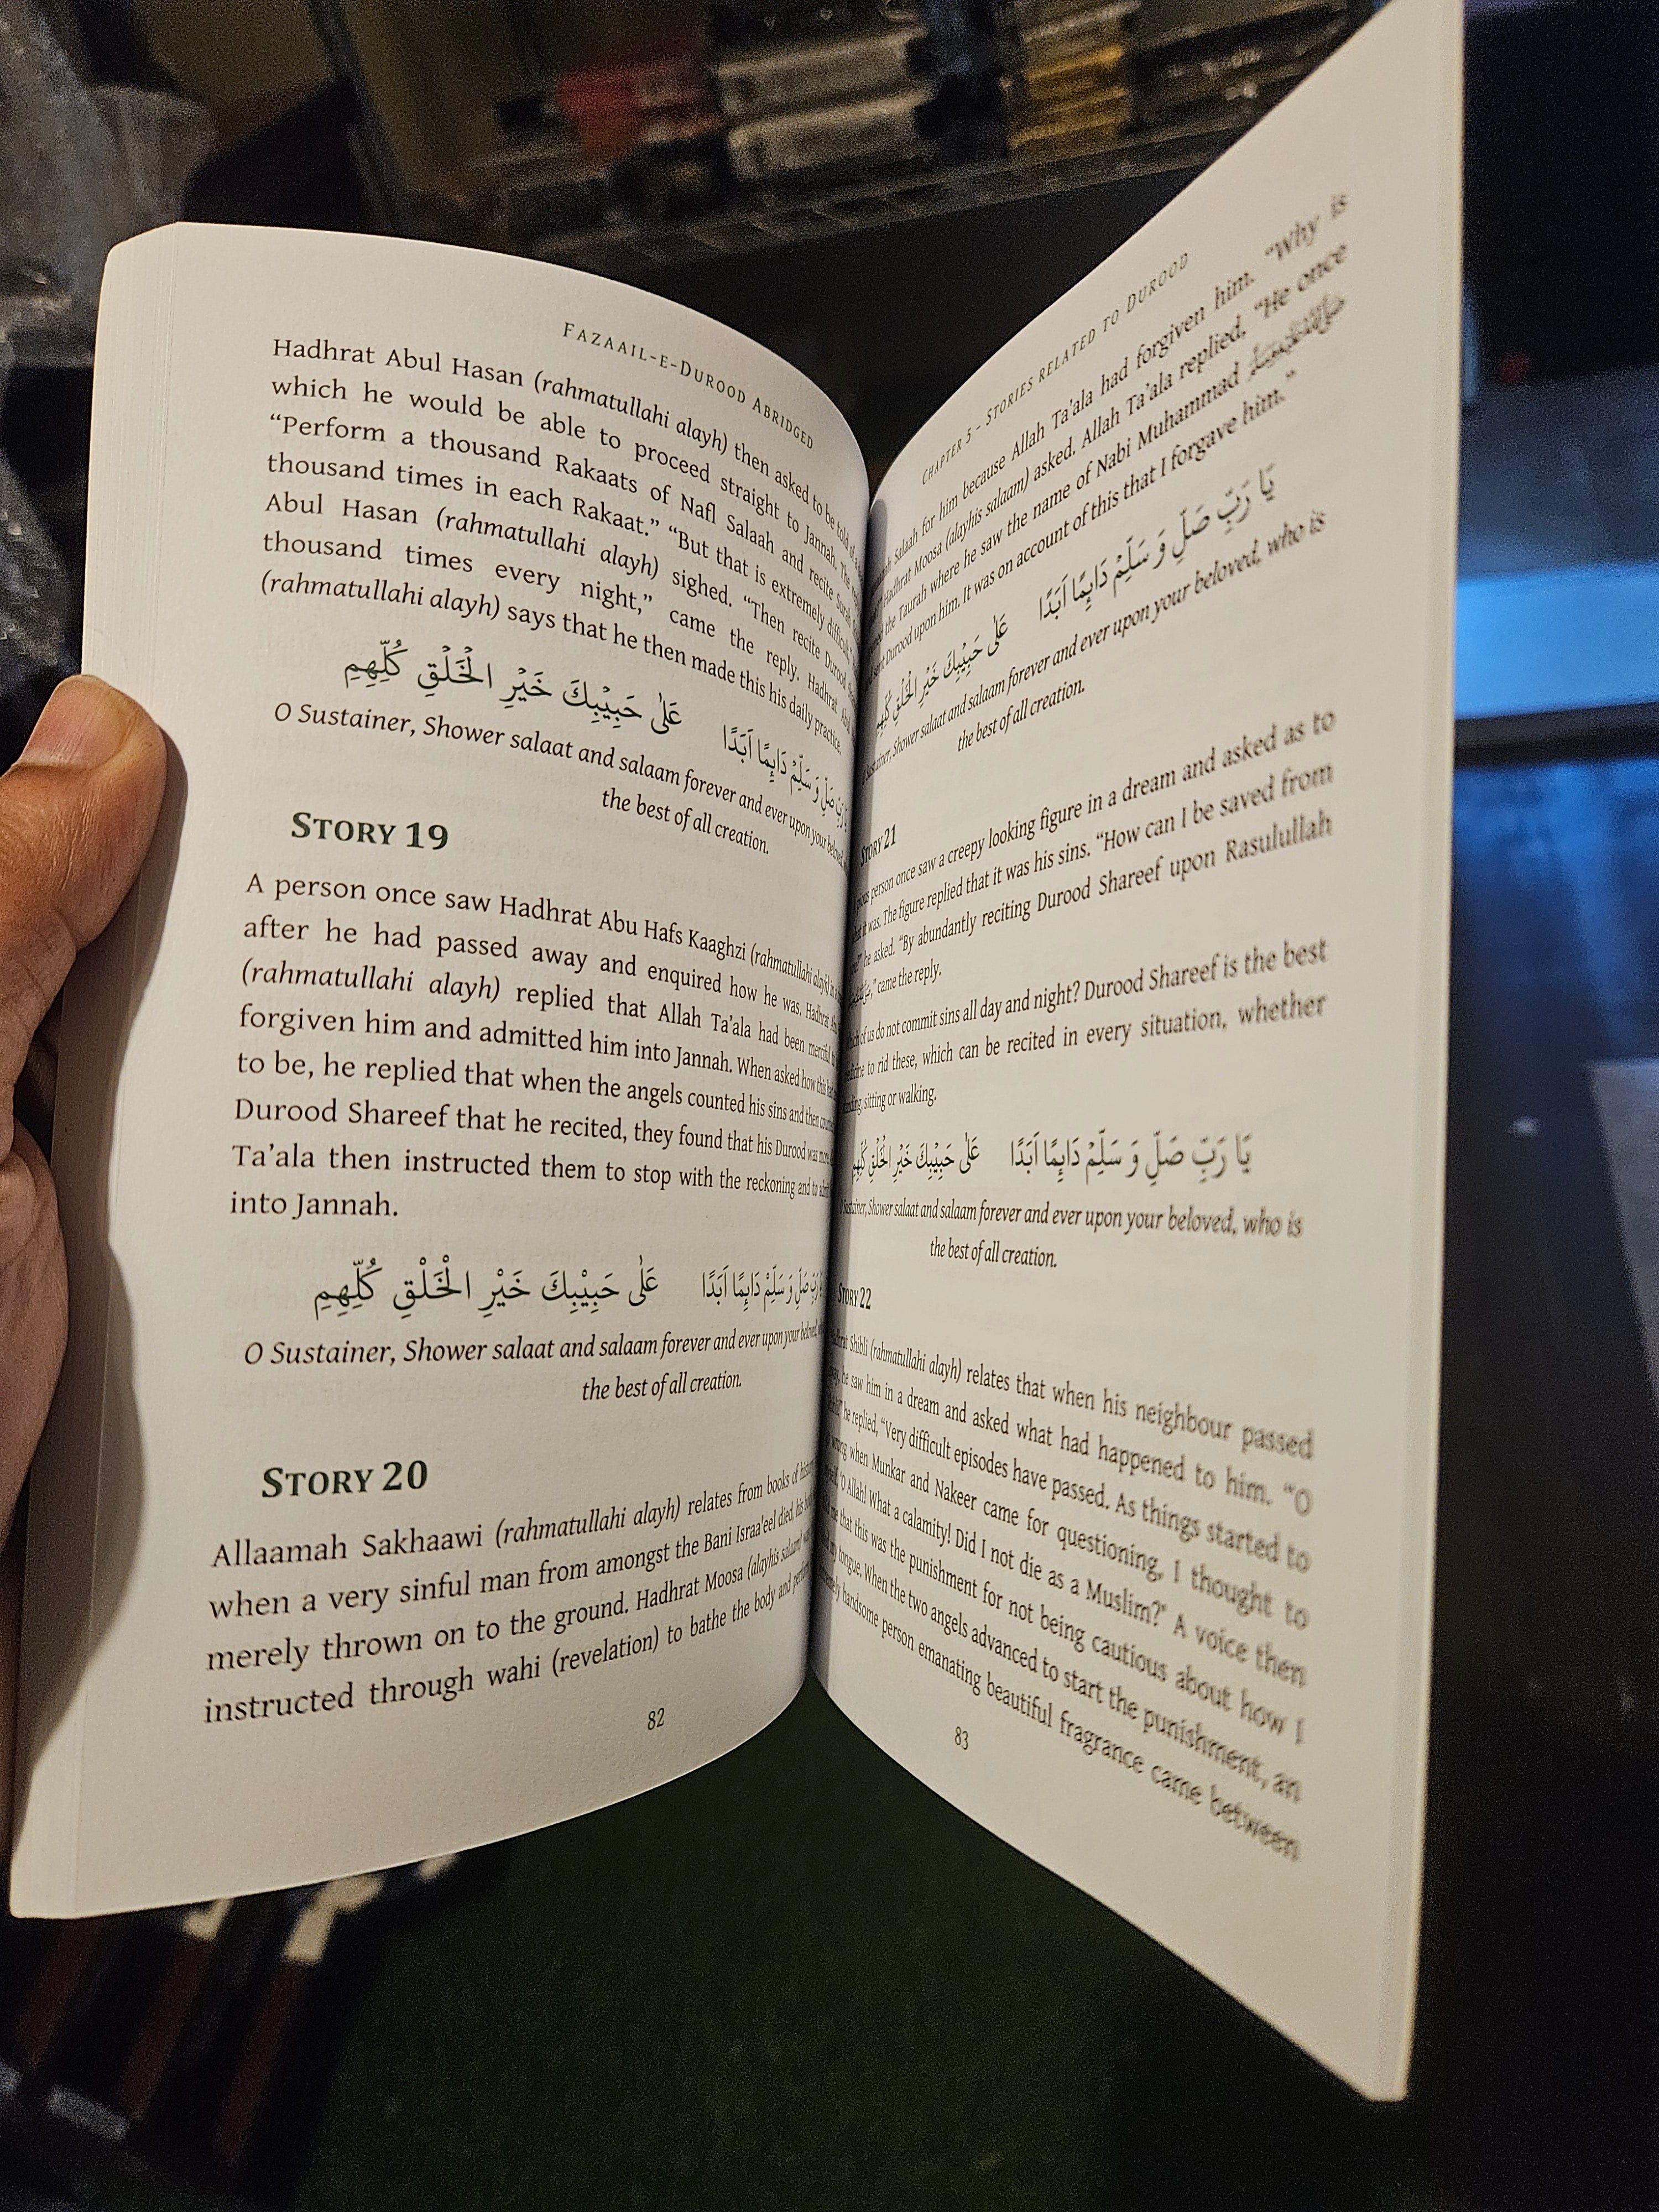 FAZAAIL-E-DUROOD ABRIDGED
Hadhrat Abul Hasan (rahmatullahi alayh) then asked to be told of a
which he would be able to proceed straight to Jannah. The
“Perform a thousand Rakaats of Nafl Salaah and recite Surah
thousand times in each Rakaat.” “But that is extremely difficult,”
Abul Hasan (rahmatullahi alayh) sighed. “Then recite Durood
thousand times every night,” came the reply. Hadhrat Abul
(rahmatullahi alayh) says that he then made this his daily practice.
رَبِّ صَلِّ وَ سَلِّمْ دَائِمًا اَبَدًا عَلٰى حَبِيْبِكَ خَيْرِ الْخَلْقِ كُلِّهِمِ
O Sustainer, Shower salaat and salaam forever and ever upon your beloved,
the best of all creation.
STORY 19
A person once saw Hadhrat Abu Hafs Kaaghzi (rahmatullahi alayh) in a
after he had passed away and enquired how he was. Hadhrat
(rahmatullahi alayh) replied that Allah Ta’ala had been merciful
forgiven him and admitted him into Jannah. When asked how this
to be, he replied that when the angels counted his sins and then
Durood Shareef that he recited, they found that his Durood was more.
Ta’ala then instructed them to stop with the reckoning and to
into Jannah.
رَبِّ صَلِّ وَ سَلِّمْ دَائِمًا اَبَدًا عَلٰى حَبِيْبِكَ خَيْرِ الْخَلْقِ كُلِّهِمِ
O Sustainer, Shower salaat and salaam forever and ever upon your beloved,
the best of all creation.
STORY 20
Allaamah Sakhaawi (rahmatullahi alayh) relates from books of
when a very sinful man from amongst the Bani Israa’eel died, his
merely thrown on to the ground. Hadhrat Moosa (alayhis salaam)
instructed through wahi (revelation) to bathe the body and
82
CHAPTER 5 - STORIES RELATED TO DUROOD
Salaah for him because Allah Ta’ala had forgiven him. “Why is
Hadhrat Moosa (alayhis salaam) asked. Allah Ta’ala replied, “He once
the Taurah where he saw the name of Nabi Muhammad ﷺ
Durood upon him. It was on account of this that I forgave him.”
يَا رَبِّ صَلِّ وَ سَلِّمْ دَائِمًا اَبَدًا عَلٰى حَبِيْبِكَ خَيْرِ الْخَلْقِ كُلِّهِمِ
Sustainer, Shower salaat and salaam forever and ever upon your beloved, who is
the best of all creation.
STORY 21
person once saw a creepy looking figure in a dream and asked as to
it was. The figure replied that it was his sins. “How can I be saved from
he asked. “By abundantly reciting Durood Shareef upon Rasulullah
came the reply.
of us do not commit sins all day and night? Durood Shareef is the best
to rid these, which can be recited in every situation, whether
sitting or walking.
يَا رَبِّ صَلِّ وَ سَلِّمْ دَائِمًا اَبَدًا عَلٰى حَبِيْبِكَ خَيْرِ الْخَلْقِ كُلِّهِمِ
O Sustainer, Shower salaat and salaam forever and ever upon your beloved, who is
the best of all creation.
STORY 22
Shibli (rahmatullahi alayh) relates that when his neighbour passed
he saw him in a dream and asked what had happened to him. “O
he replied, “Very difficult episodes have passed. As things started to
wrong when Munkar and Nakeer came for questioning, I thought to
‘O Allah! What a calamity! Did I not die as a Muslim?’ A voice then
me that this was the punishment for not being cautious about how I
tongue. When the two angels advanced to start the punishment, an
handsome person emanating beautiful fragrance came between
83